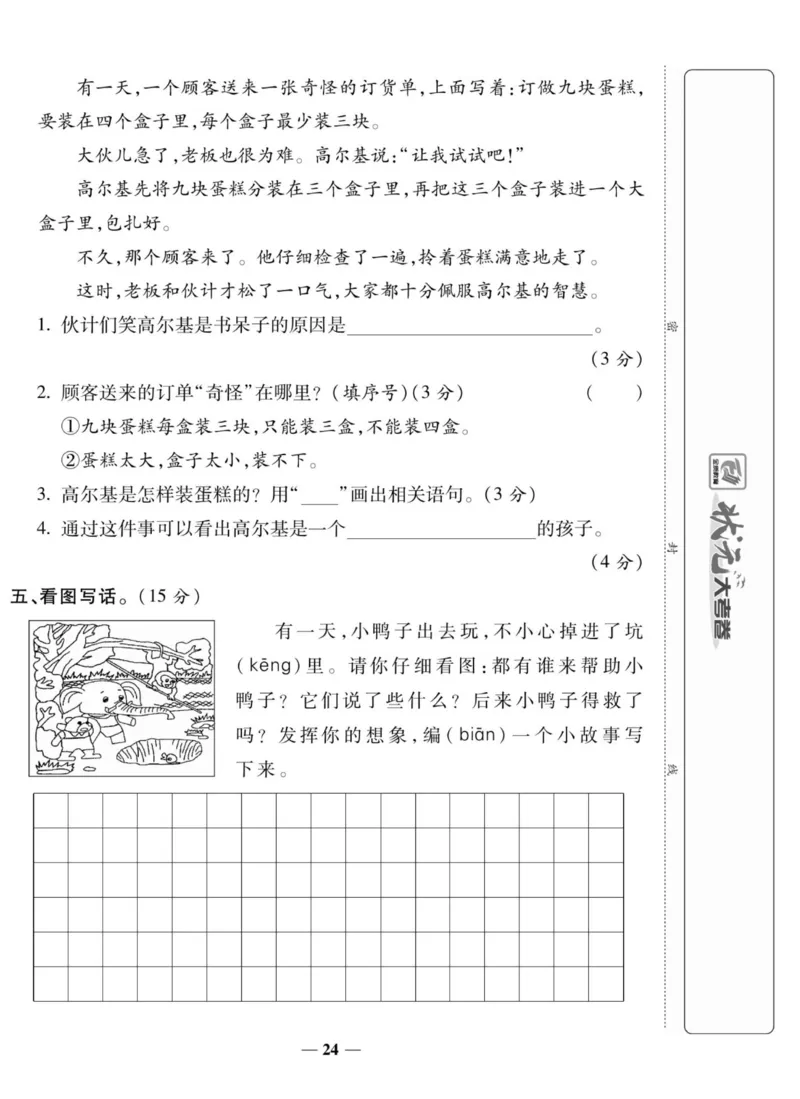 有一天,一个顾客送来一张奇怪的订货单,上面写着:订做九块蛋糕,
要装在四个盒子里,每个盒子最少装三块。
大伙儿急了,老板也很为难。高尔基说:“让我试试吧!”
高尔基先将九块蛋糕分装在三个盒子里,再把这三个盒子装进一个大
盒子里,包扎好。
不久,那个顾客来了。他仔细检查了一遍,拎着蛋糕满意地走了。
这时,老板和伙计才松了一口气,大家都十分佩服高尔基的智慧。
1. 伙计们笑高尔基是书呆子的原因是____________________。
(3 分)
2. 顾客送来的订单“奇怪”在哪里?(填序号)(3 分) ( )
①九块蛋糕每盒装三块,只能装三盒,不能装四盒。
②蛋糕太大,盒子太小,装不下。
3. 高尔基是怎样装蛋糕的? 用“____”画出相关语句。(3 分)
4. 通过这件事可以看出高尔基是一个________________的孩子。
(4 分)
五、看图写话。(15 分)
有一天,小鸭子出去玩,不小心掉进了坑
(kēng)里。请你仔细看图:都有谁来帮助小
鸭子? 它们说了些什么? 后来小鸭子得救了
吗? 发挥你的想象,编(biān)一个小故事写
下来。
密
封
线
状元大考卷
— 24 —